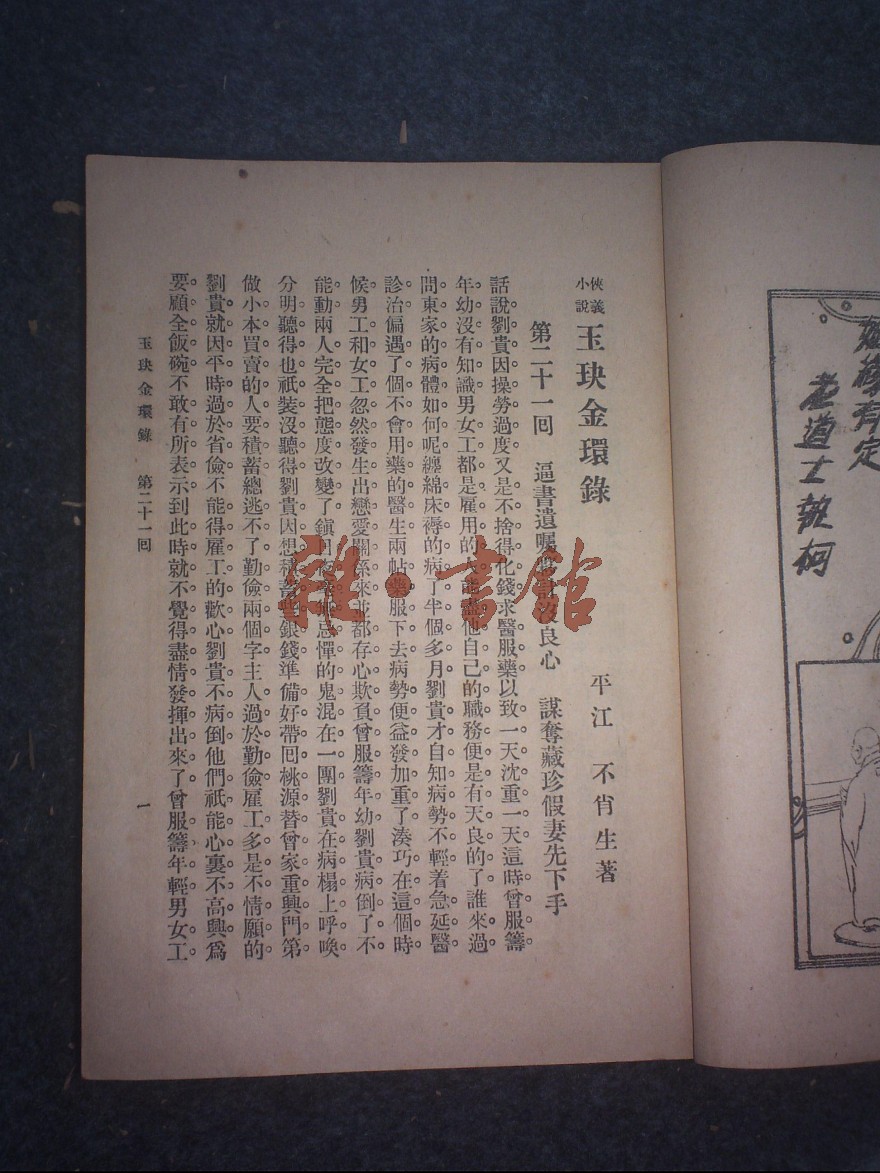 姻緣有定
老道士執柯
俠義小說 玉玦金環錄
平江 不肖生著
第二十一回 逼書遺囑夥計沒良心 謀奪藏珍假妻先下手
話說劉貴因操勞過度又是不捨得化錢求醫服藥以致一天沈重一天這時曾服籌
年幼沒有知識男女工都是雇用的人能盡他自己的職務便是有天良的了誰來過
問東家的病體如何呢纏綿床褥的病了半個多月劉貴才自知病勢不輕着急延醫
診治偏遇了個不會用藥的醫生兩帖藥服下去病勢便益發加重了湊巧在這個時
候男工和女工忽然發生出戀愛關係來並都存心欺負曾服籌年幼劉貴病倒了不
能動兩人完全把態度改變了鎮日無忌憚的鬼混在一團劉貴在病榻上呼喚
分明聽得也祇裝沒聽得劉貴因想積蓄些銀錢準備好帶回桃源替曾家重興門第
做小本買賣的人要積蓄總逃不了勤儉兩個字主人過於勤儉雇工多是不情願的
劉貴就因平時過於省儉不能得雇工的歡心劉貴不病倒他們祇能心裏不高興爲
要顧全飯碗不敢有所表示到此時就不覺得盡情發揮出來了曾服籌年輕男女工
玉玦金環錄 第二十一回 一
雜·書館